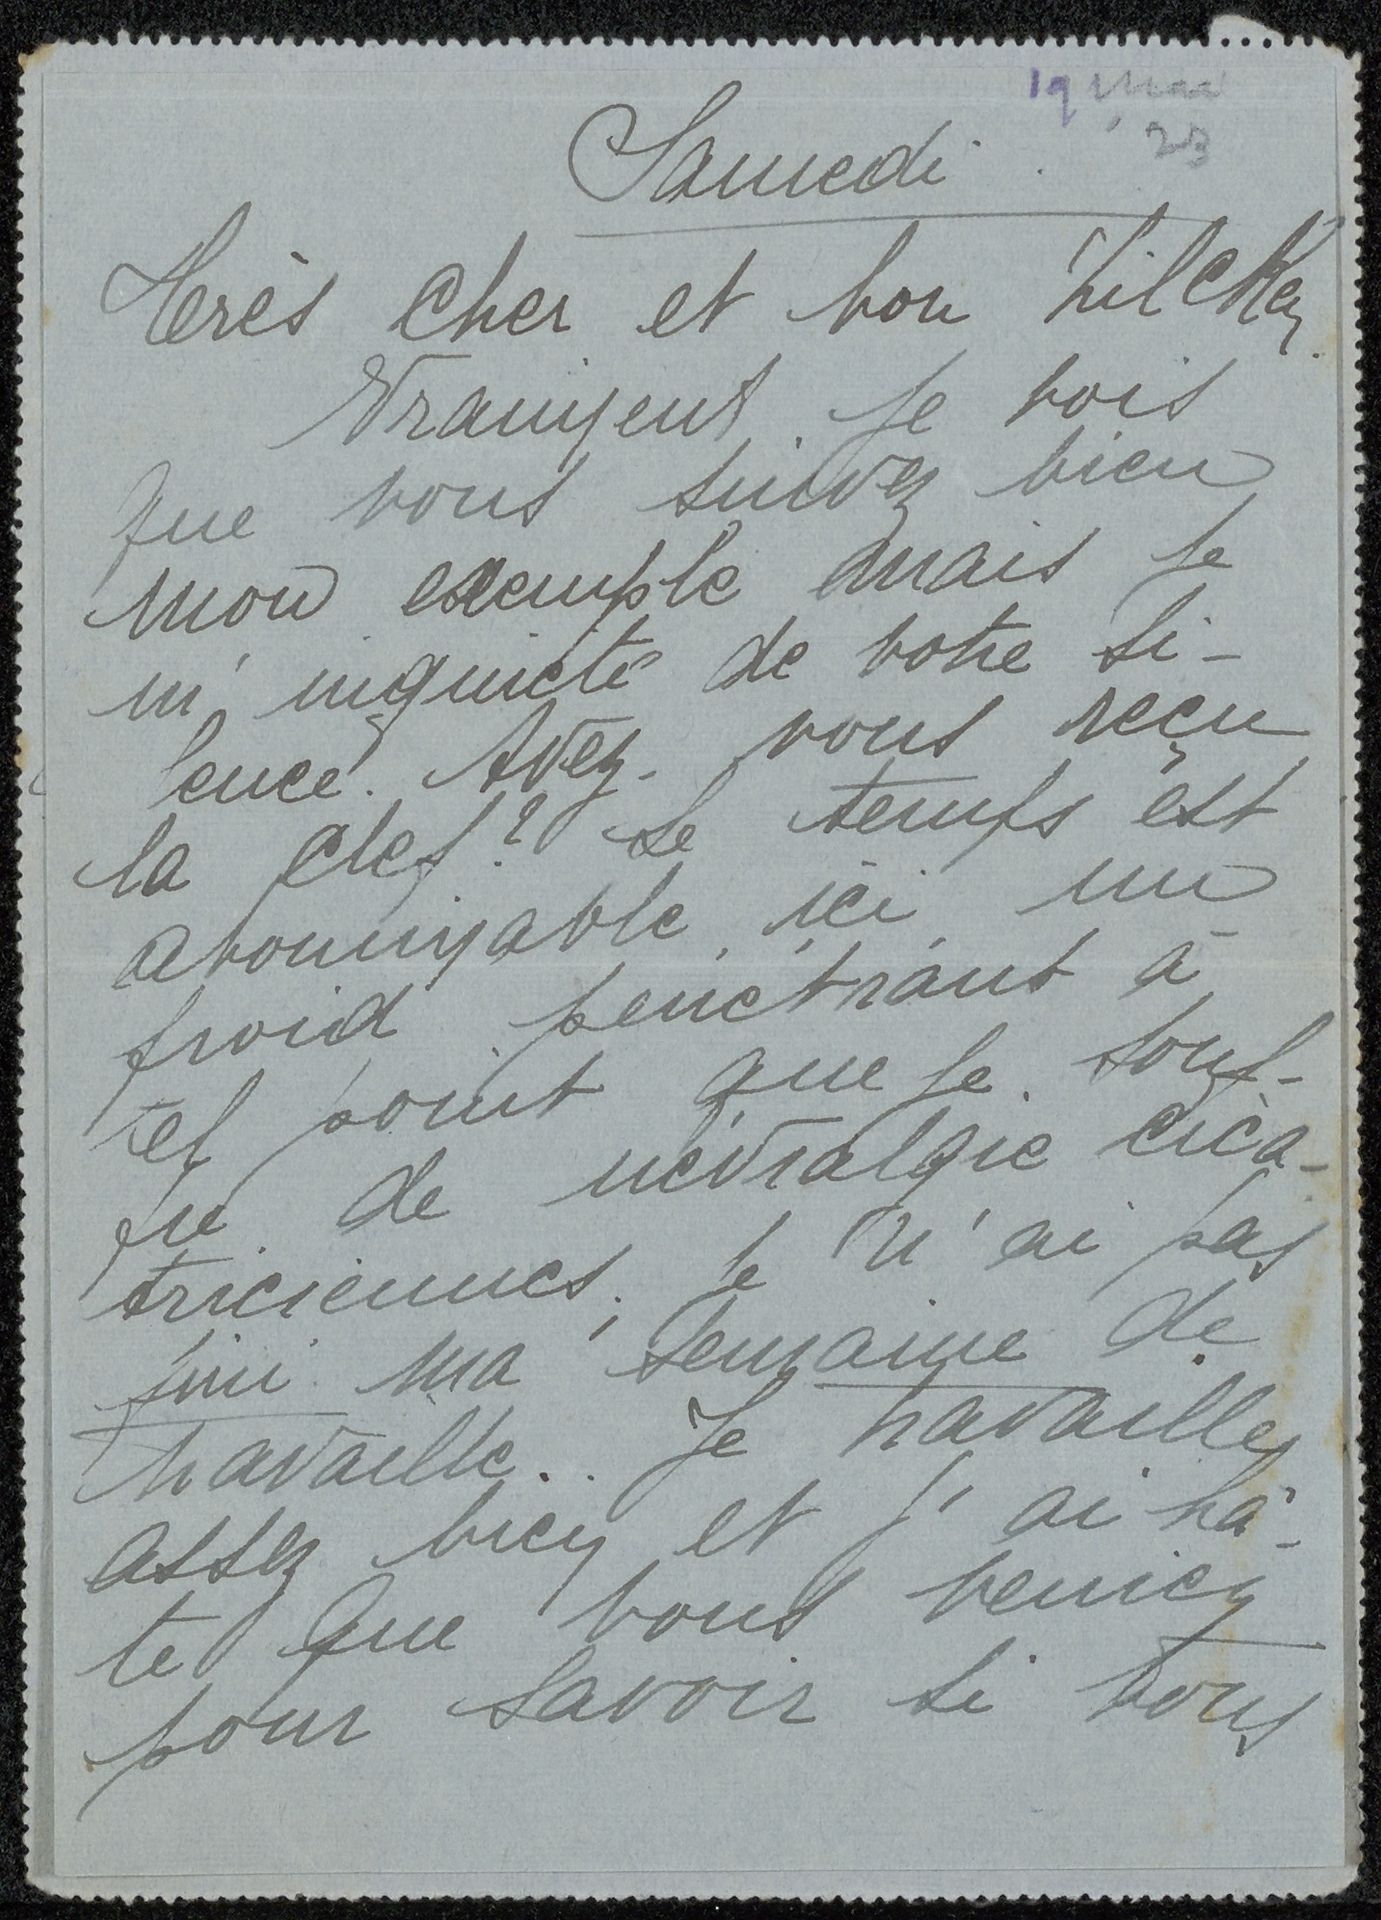 19 Mai
23
Samedi
Très cher et bon Zilcken
Vraiment je vois
que vous suivez bien
mon exemple mais je
m'inquiète de votre si-
lence. Avez-vous reçu
la clef? Le temps est
abominable ici un
froid pénétrant à
tel point que je souf-
fre de névralgie cica-
triciennes. Je n'ai pas
fini ma semaine de
travaille.. Je travaille
assez bien et j'ai hâ-
te que vous veniez
pour savoir si vous